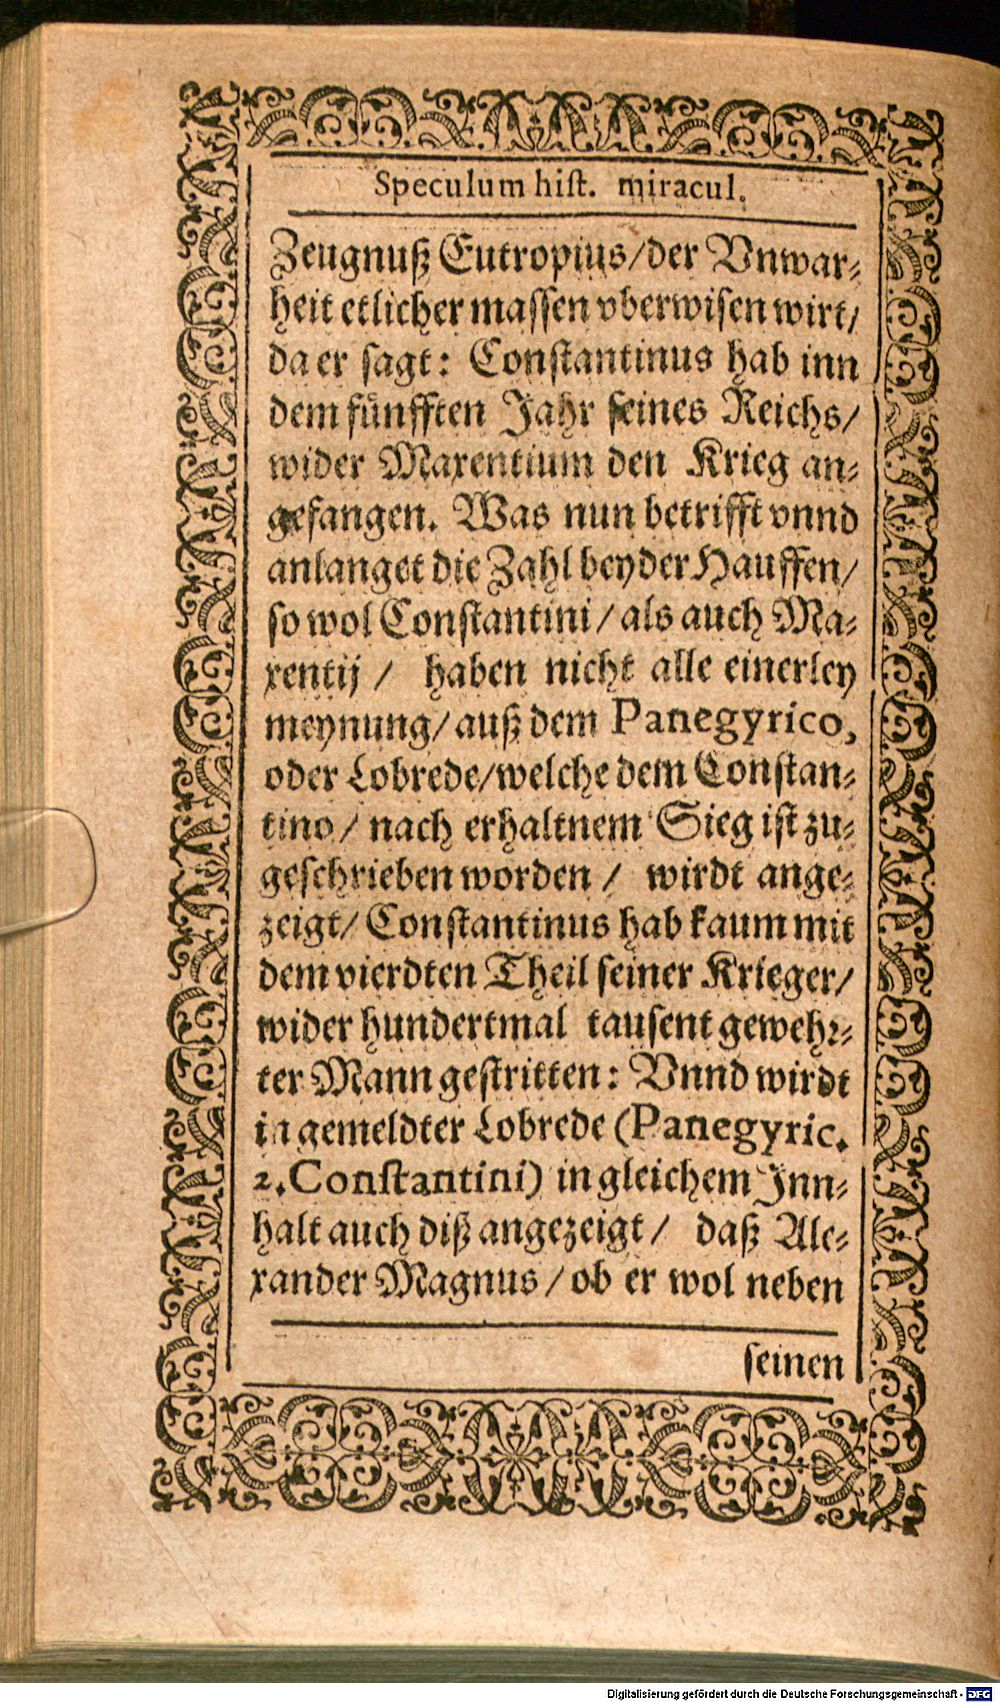 Speculum hiſt. miracul.
Zeugnuß Eutropius/der Vnwar⸗
heit etlicher maſſen vberwiſen wirt/
da er ſagt: Conſtantinus hab inn
dem fünfften Jahr ſeines Reichs/
wider Maxentium den Krieg an⸗
gefangen. Was nun betrifft vnnd
anlanget die Zahl beyder Hauffen/
ſo wol Conſtantini/als auch Ma⸗
xentij / haben nicht alle einerley
meynung/auß dem Panegyrico,
oder Lobrede/welche dem Conſtan⸗
tino/ nach erhaltnem Sieg iſt zu⸗
geſchrieben worden / wirdt ange⸗
zeigt/ Conſtantinus hab kaum mit
dem vierdten Theil ſeiner Krieger/
wider hundertmal tauſent gewehꝛ⸗
ter Mann geſtritten: Vnnd wirdt
in gemeldter Lobrede (Panegyric.
2. Conſtantini) in gleichem Inn⸗
halt auch diß angezeigt/ daß Ale⸗
xander Magnus/ob er wol neben
ſeinen
Digitalisierung gefördert durch die Deutsche Forschungsgemeinschaft - DFG